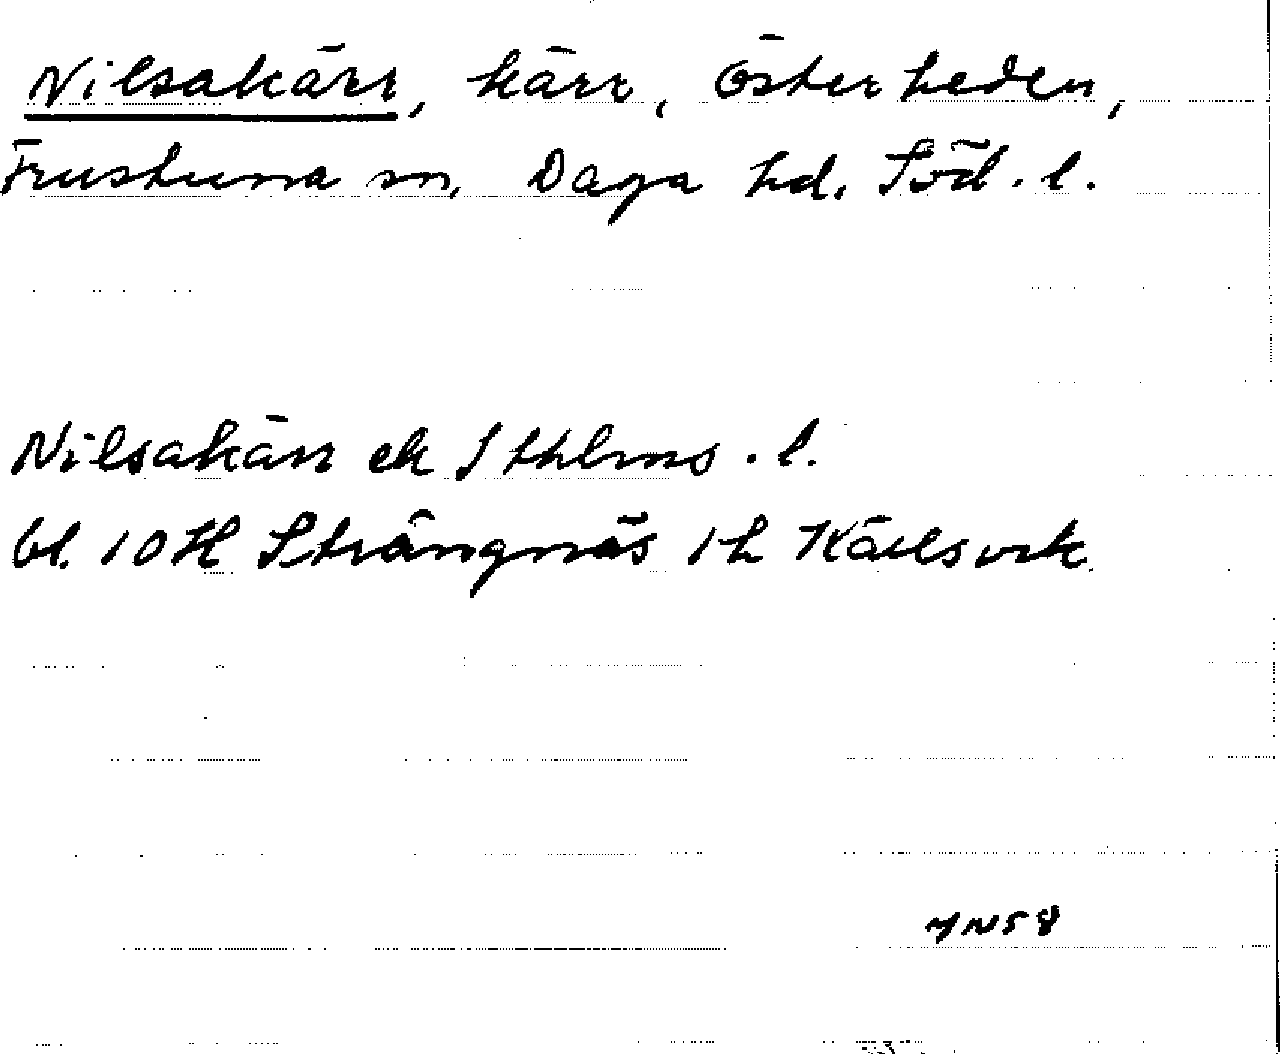 Nilsakärr, kärr, Österheden,
Frustuna sn, Daga hd. Söd. l.
Nilsakärr ek Sthlms. l.
bl. 10 H Strängnäs 1 h